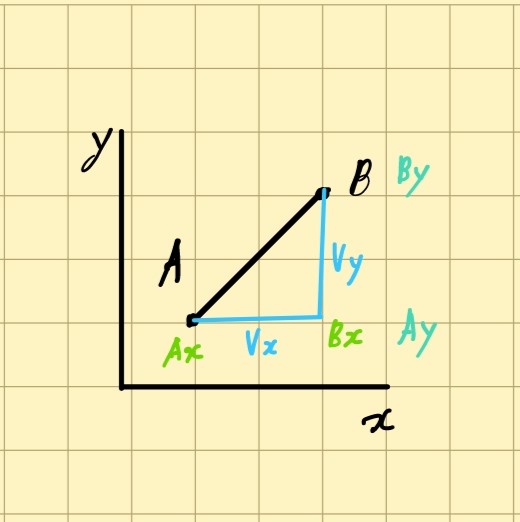 y
B By
A
Vy
Ax Vx Bx Ay
x